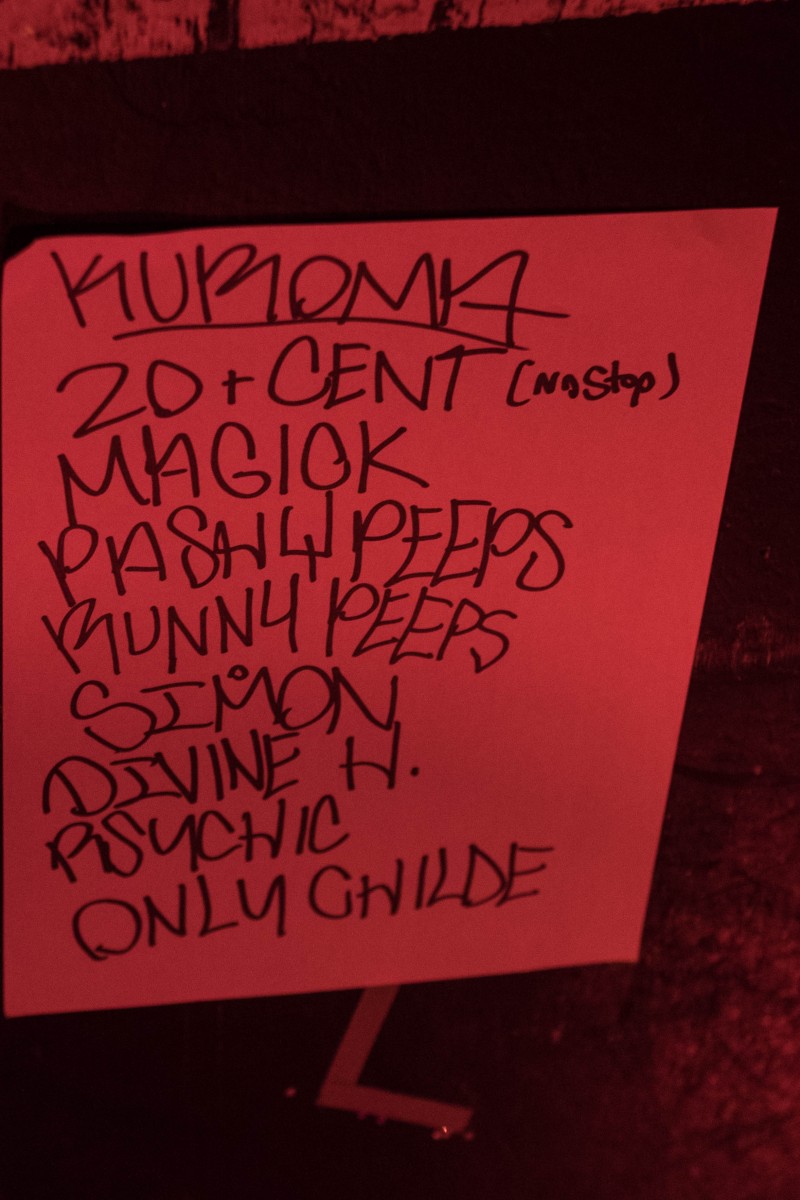 KUROMA
20 + CENT (No Stop)
MAGICK
PASHLY PEEPS
RUNNY PEEPS
SIMON
DIVINE H.
PSYCHIC
ONLY CHILDE